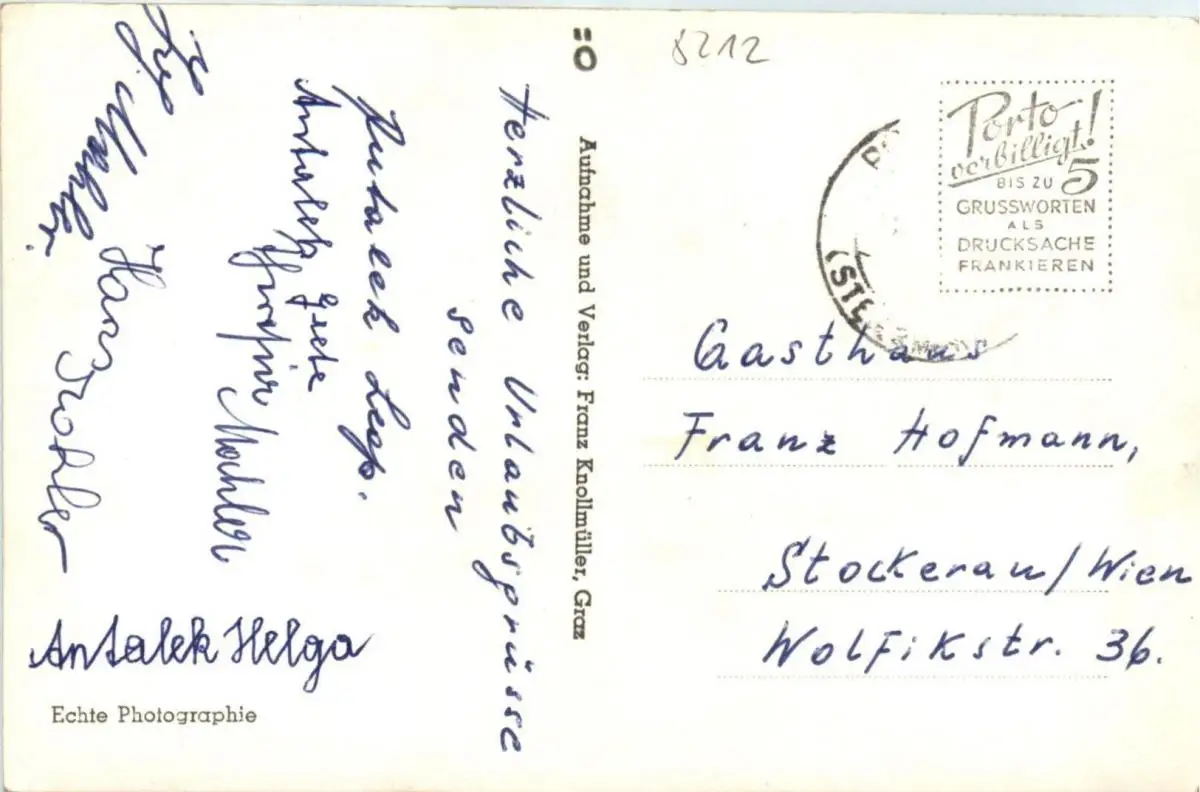 8212
Porto
verbilligt!
BIS ZU 5
GRUSSWORTEN
ALS
DRUCKSACHE
FRANKIEREN
Gasthaus
Franz Hofmann,
Stockerau/Wien
Wolfikstr. 36.
Aufnahme und Verlag: Franz Knollmüller, Graz
Herzliche Urlaubsgrüsse
senden
Antalek
Grete
Mahler
Hans
Antalek Helga
Echte Photographie